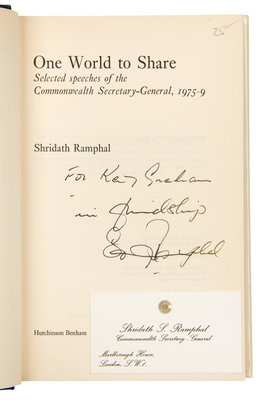 One World to Share
Selected speeches of the
Commonwealth Secretary-General, 1975-9
Shridath Ramphal
For Kay Graham
in friendship
Hutchinson Benham
Shridath S. Ramphal
Commonwealth Secretary-General
Marlborough House,
London. S.W.1.